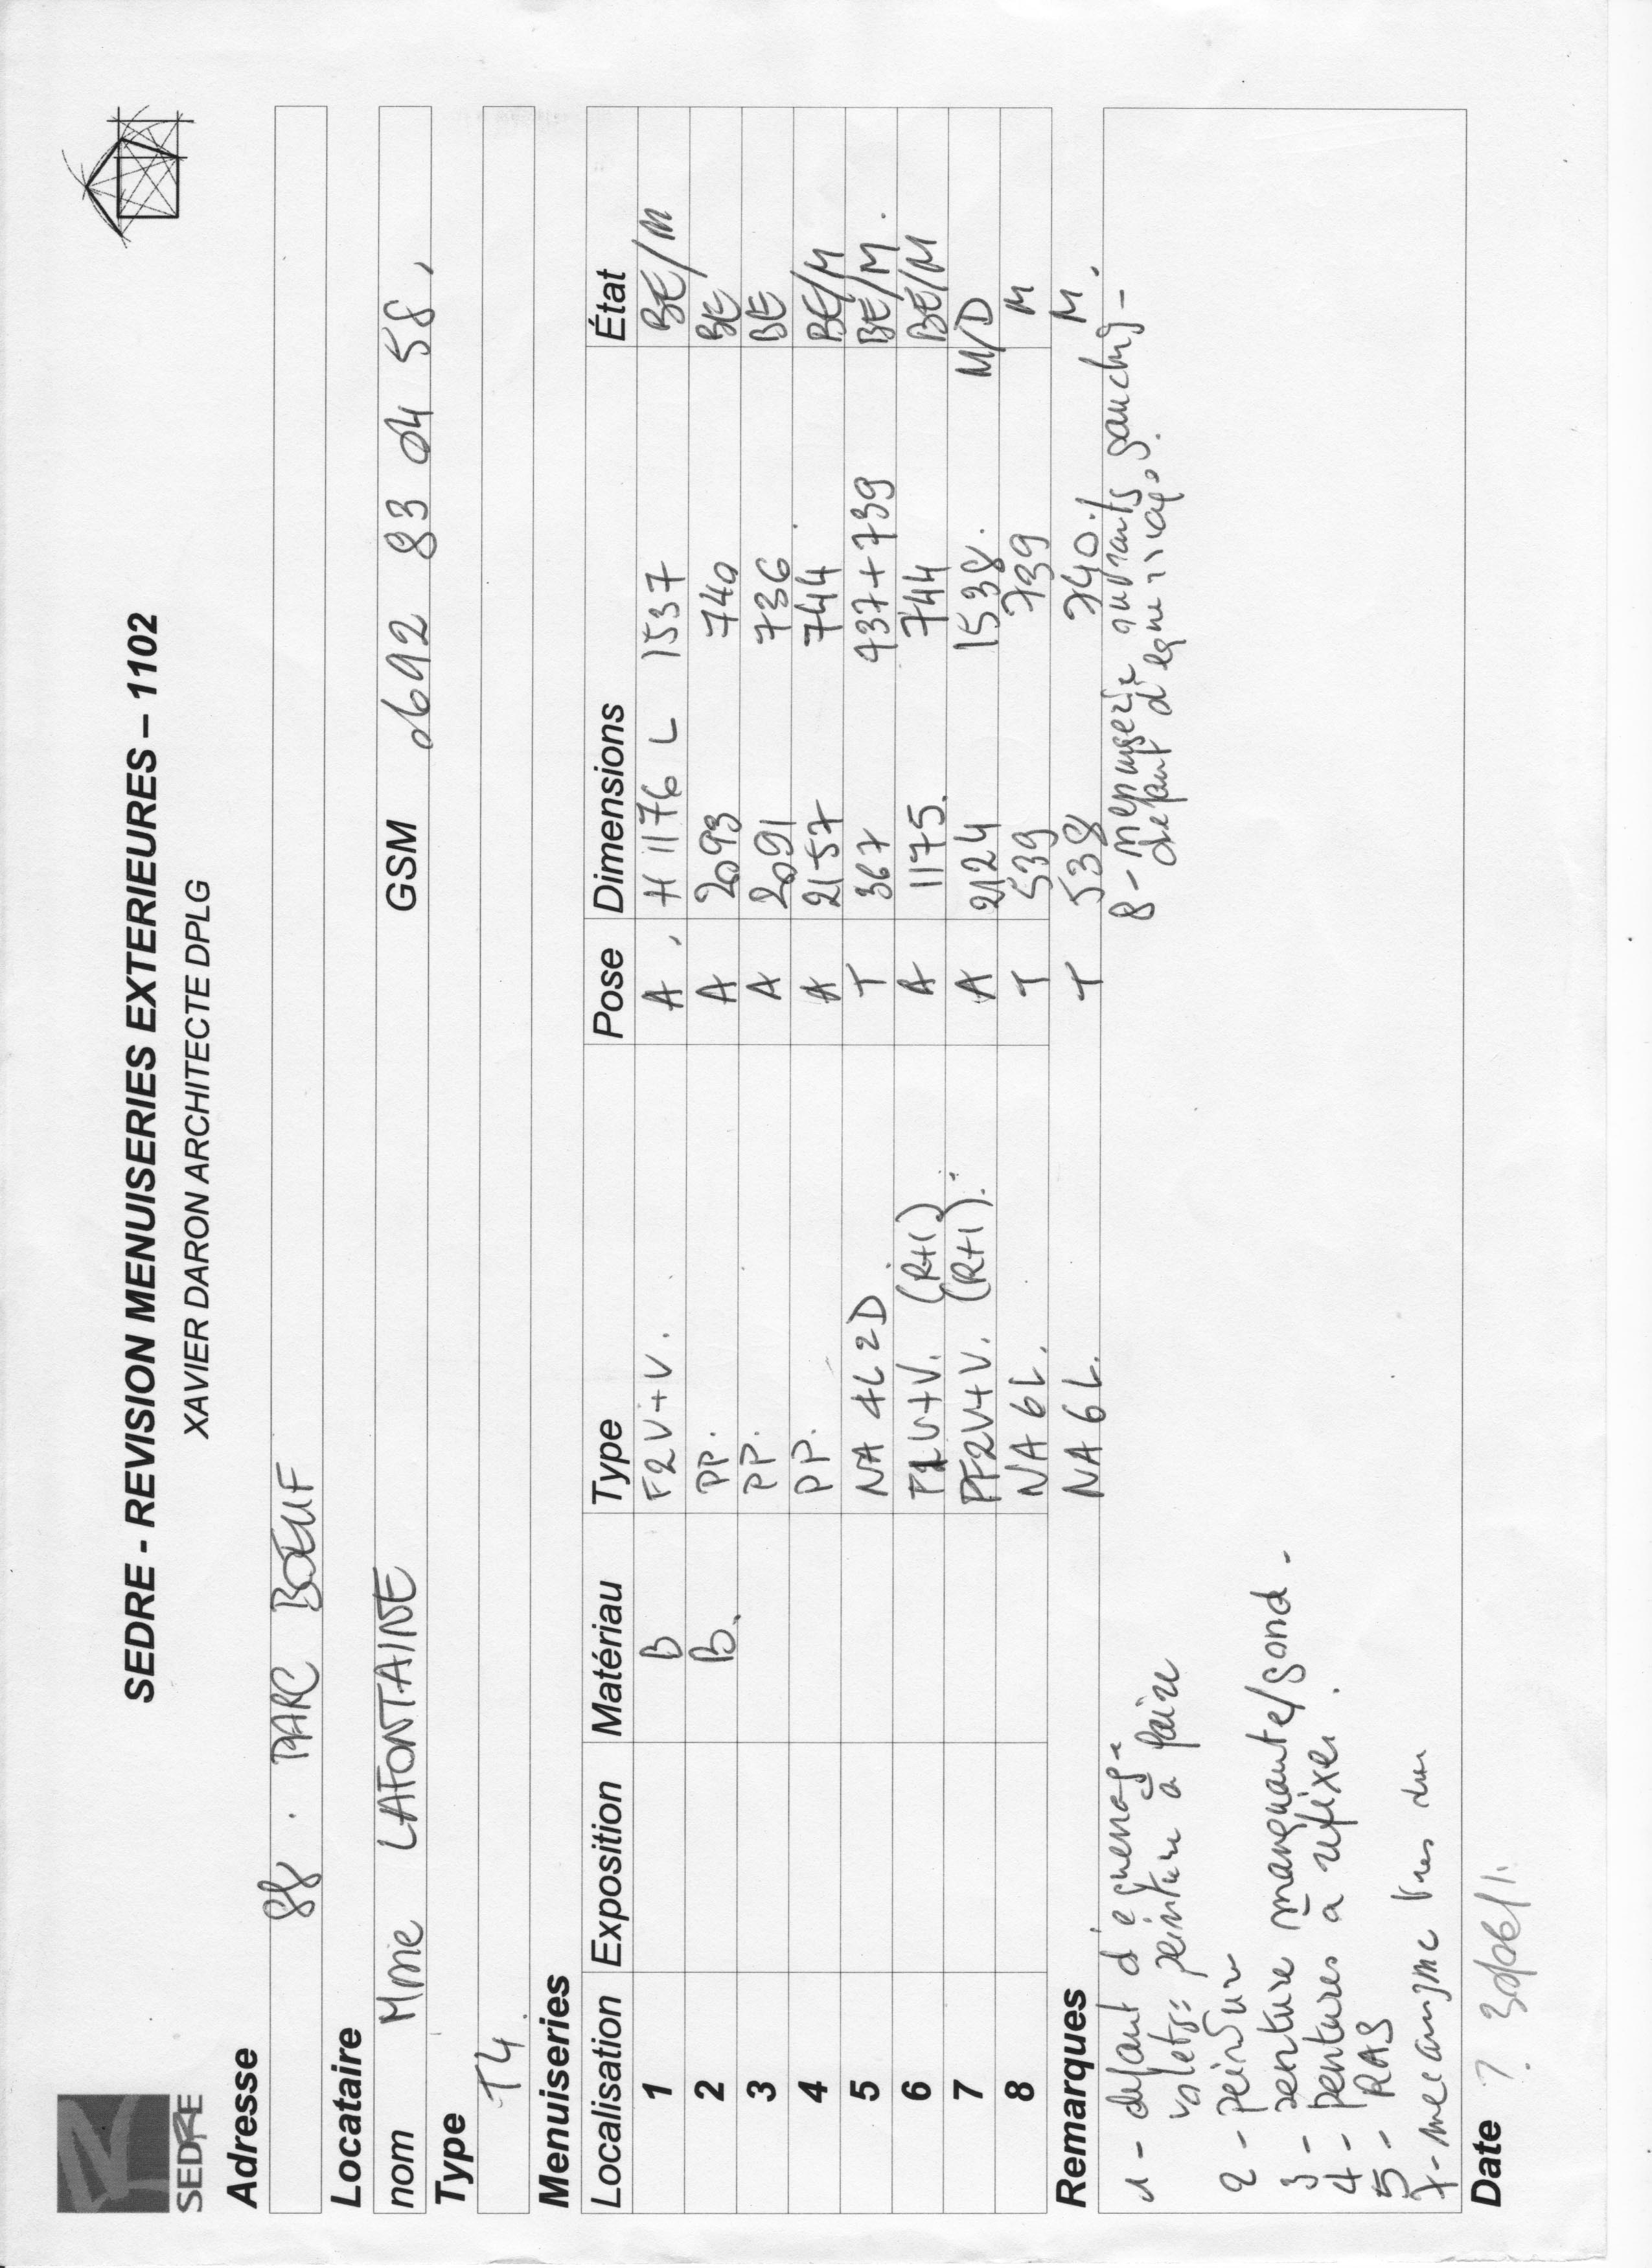 SEDRE
SEDRE - REVISION MENUISERIES EXTERIEURES – 1102
XAVIER DARON ARCHITECTE DPLG
Adresse
88. PARC BOEUF
Locataire
nom Mme LAFONTAINE GSM 0692 83 04 58
Type
T4
Menuiseries
Localisation Exposition Matériau Type Pose Dimensions État
1 B F2V+V. A. H 1176 L 1537 BE/M
2 B. PP. A 2093 740 BE
3 PP. A 2091 736 BE
4 PP. A 2157 744 BE/M
5 NA 4L 2D T 367 437+739 BE/M.
6 V+V. (R+1) A 1175. 744 BE/M
7 PF2V+V. (R+1). A 2124 1538. M/D
8 NA 6L. T 539 739 M
NA 6L. T 538 740. M.
Remarques
1 - defaut d'equerrage
volets: peinture à faire
2 - peinture
3 - penture manquante/gond -
4 - pentures a refixer.
5 - RAS
7 - mecanisme tres dur
8 - menuiserie ouvrants gauchis -
defaut d'equerrage.
Date 30/06/11